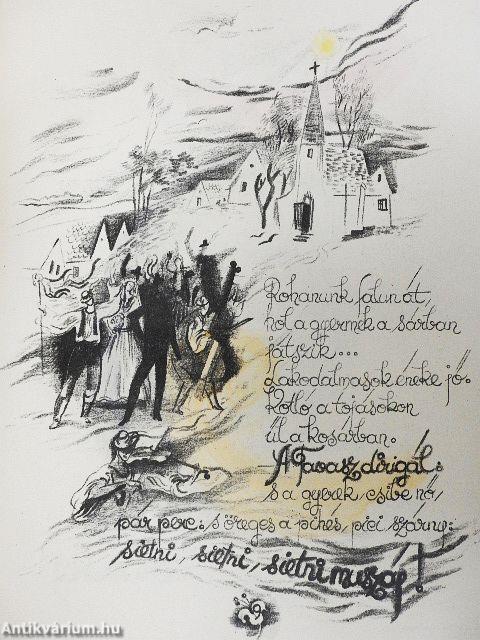 Rohanunk falun át,
hol a gyermek a sárban
játszik...
Lakodalmasok éneke jő.
Kotló a tojásokon
ül a kosárban.
A Tavasz dirigál:
s a gyerek, csibe nő,
pár perc: s öreges a pihés, pici szárny:
sietni, sietni, sietni muszáj!
Antikvárium.hu